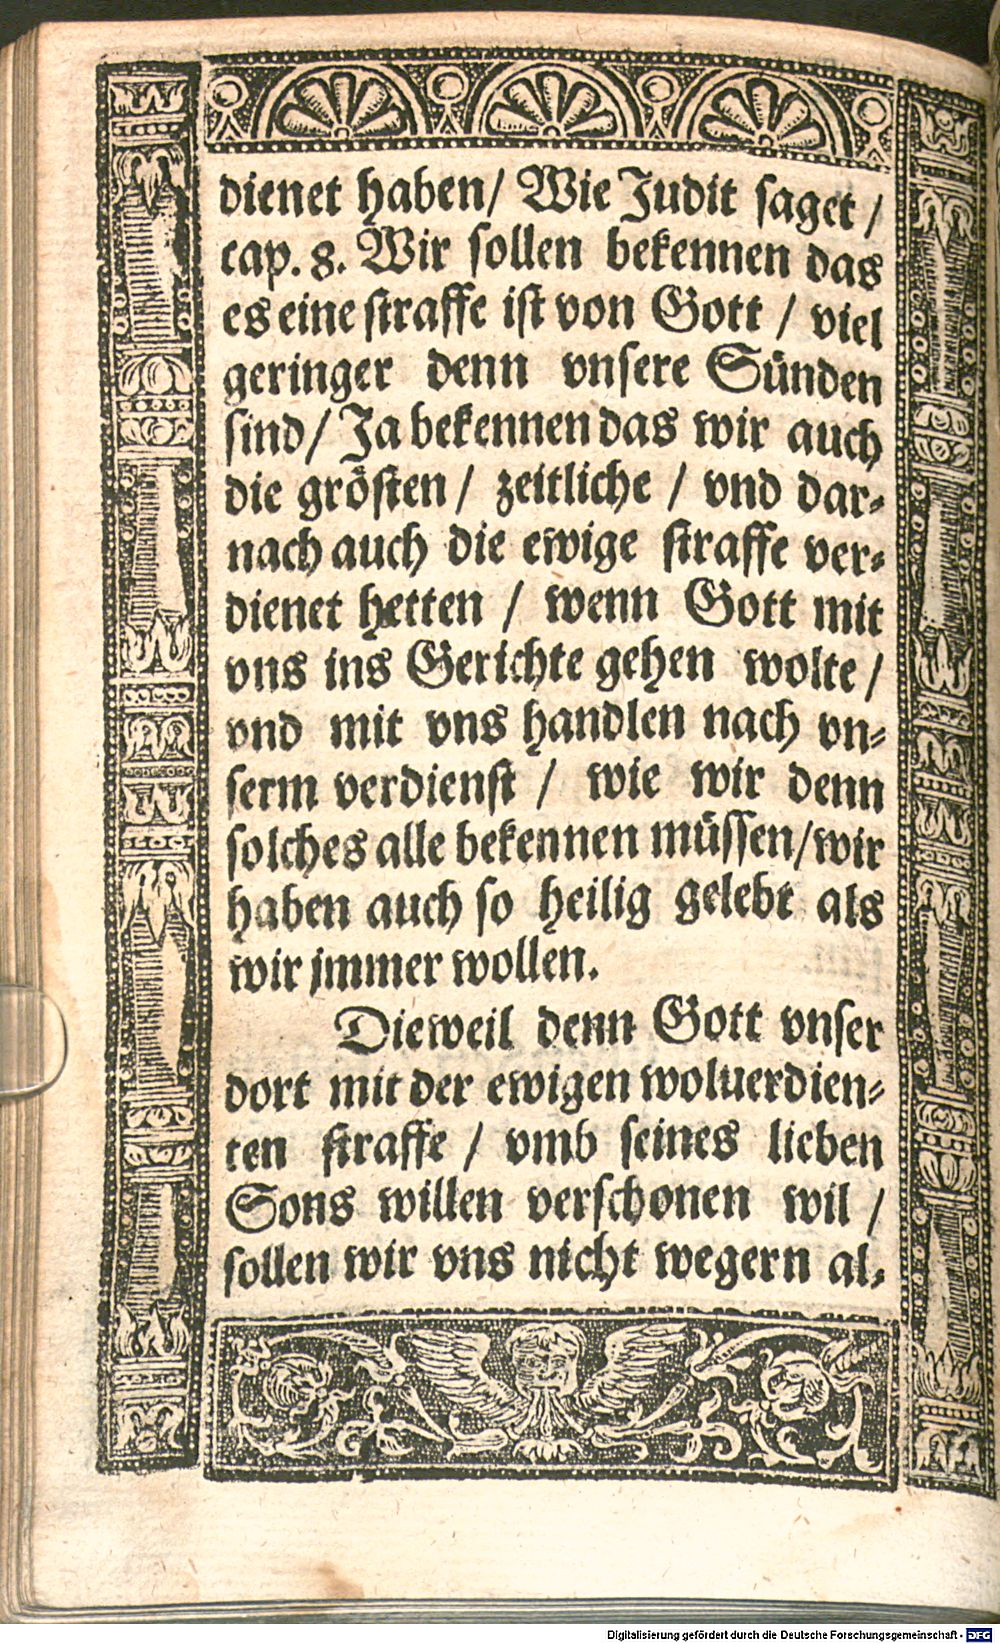 dienet haben/ Wie Judit saget /
cap. 8. Wir sollen bekennen das
es eine straffe ist von Gott / viel
geringer denn vnsere Sünden
sind/ Ja bekennen das wir auch
die grösten / zeitliche / vnd dar-
nach auch die ewige straffe ver-
dienet hetten / wenn Gott mit
vns ins Gerichte gehen wolte /
vnd mit vns handlen nach vn-
serm verdienst / wie wir denn
solches alle bekennen müssen/wir
haben auch so heilig gelebt als
wir jmmer wollen.
Dieweil denn Gott vnser
dort mit der ewigen woluerdien-
ten straffe / vmb seines lieben
Sons willen verschonen wil /
sollen wir vns nicht wegern al-
Digitalisierung gefördert durch die Deutsche Forschungsgemeinschaft - DFG